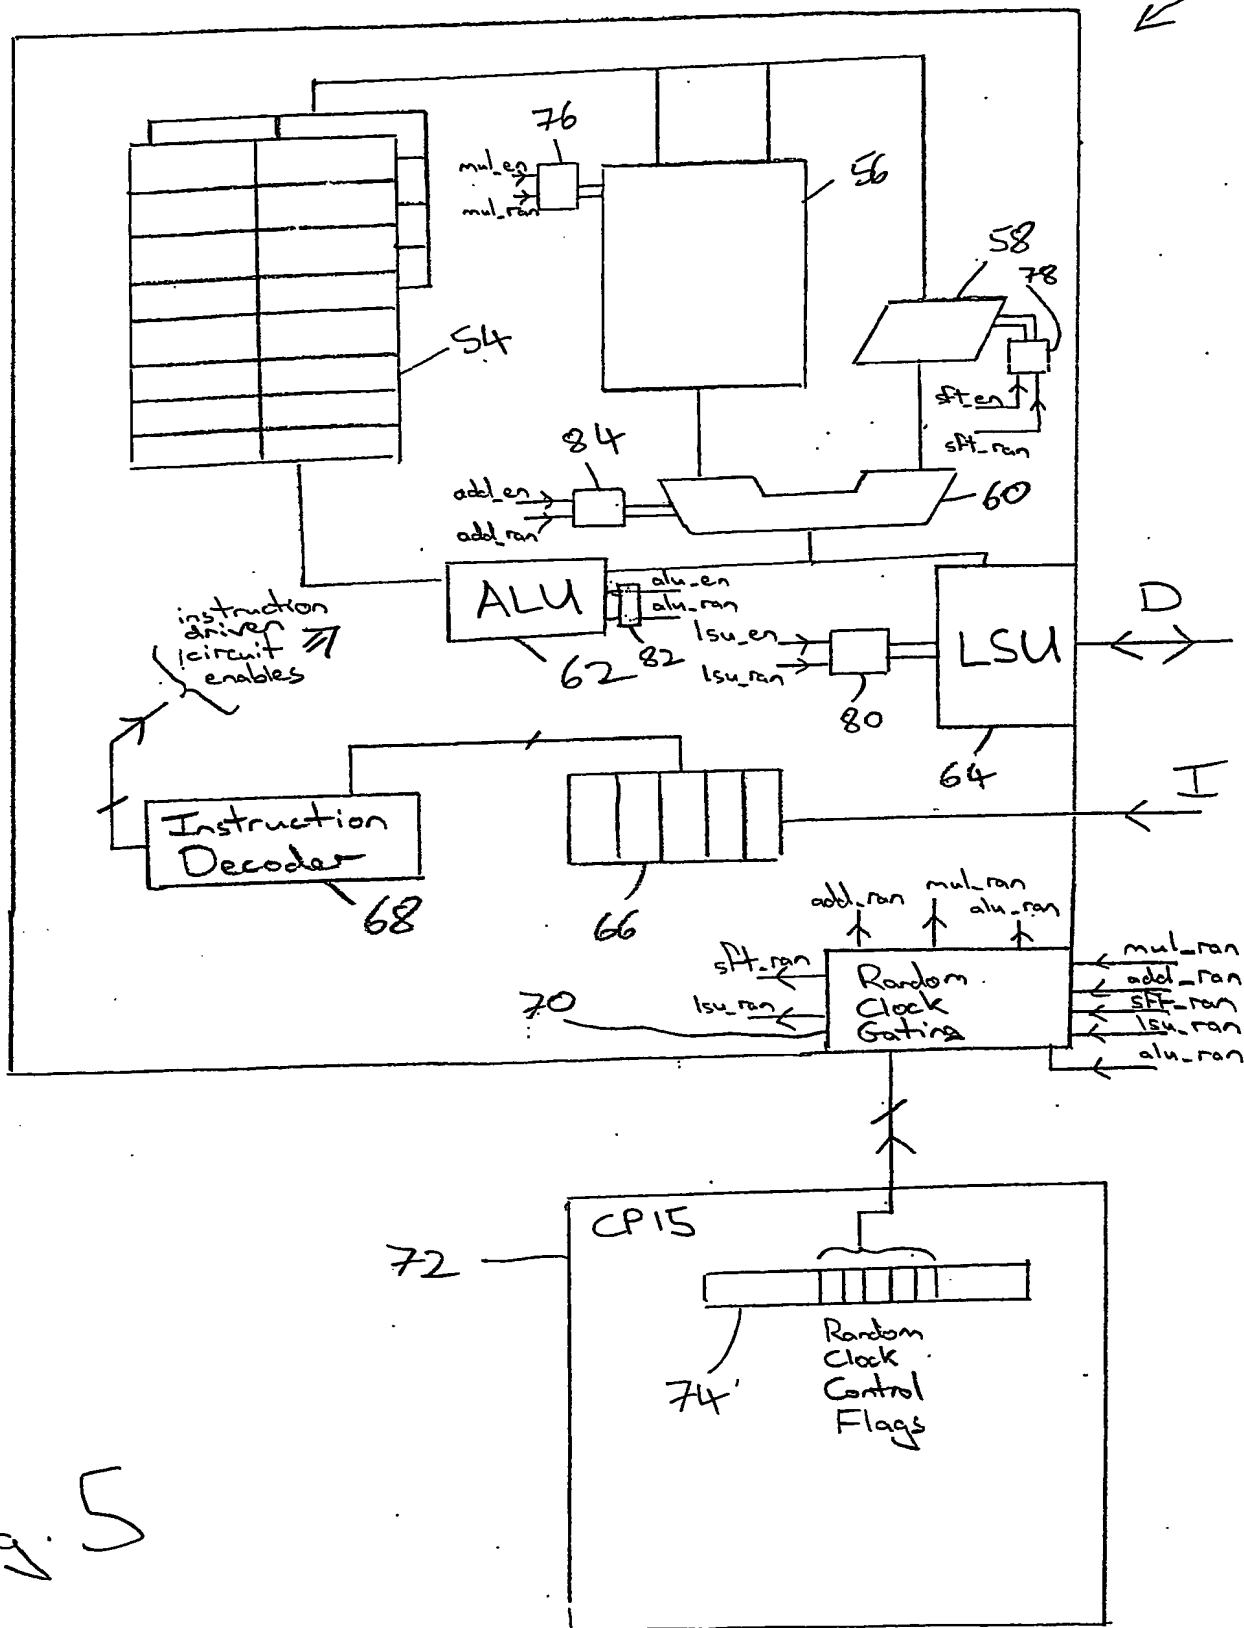 76
mul_en
mul_ran
56
58
78
54
sft_en
sft_ran
84
add_en
add_ran
60
ALU
alu_en
alu_ran
62
82
lsu_en
lsu_ran
80
LSU
64
D
instruction
driven
circuit
enables
I
Instruction
Decoder
68
66
add_ran
mul_ran
alu_ran
sft_ran
lsu_ran
70
Random
Clock
Gating
mul_ran
add_ran
sft_ran
lsu_ran
alu_ran
CP15
72
74
Random
Clock
Control
Flags
5